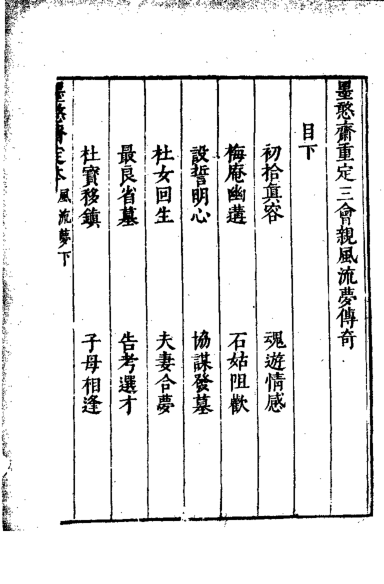 墨憨齋重定三會親風流夢傳奇
目下
初拾眞容　魂遊情感
梅庵幽遘　石姑阻歡
設誓明心　協謀發墓
杜女回生　夫妻合夢
最良省墓　告考選才
杜寶移鎮　子母相逢
墨憨齋定本　風流夢下